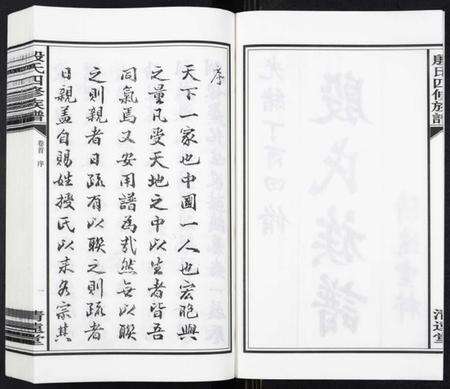 殷氏四修族譜
卷首 序
一
清蓮堂
序
天下一家也中國一人也宏胞與
之量凡受天地之中以生者皆吾
同氣焉又安用譜為哉然無以聯
之則親者日疏有以聯之則疏者
日親蓋自賜姓授氏以來各宗其
殷氏四修族譜
殷氏族譜
光緒丁酉四修